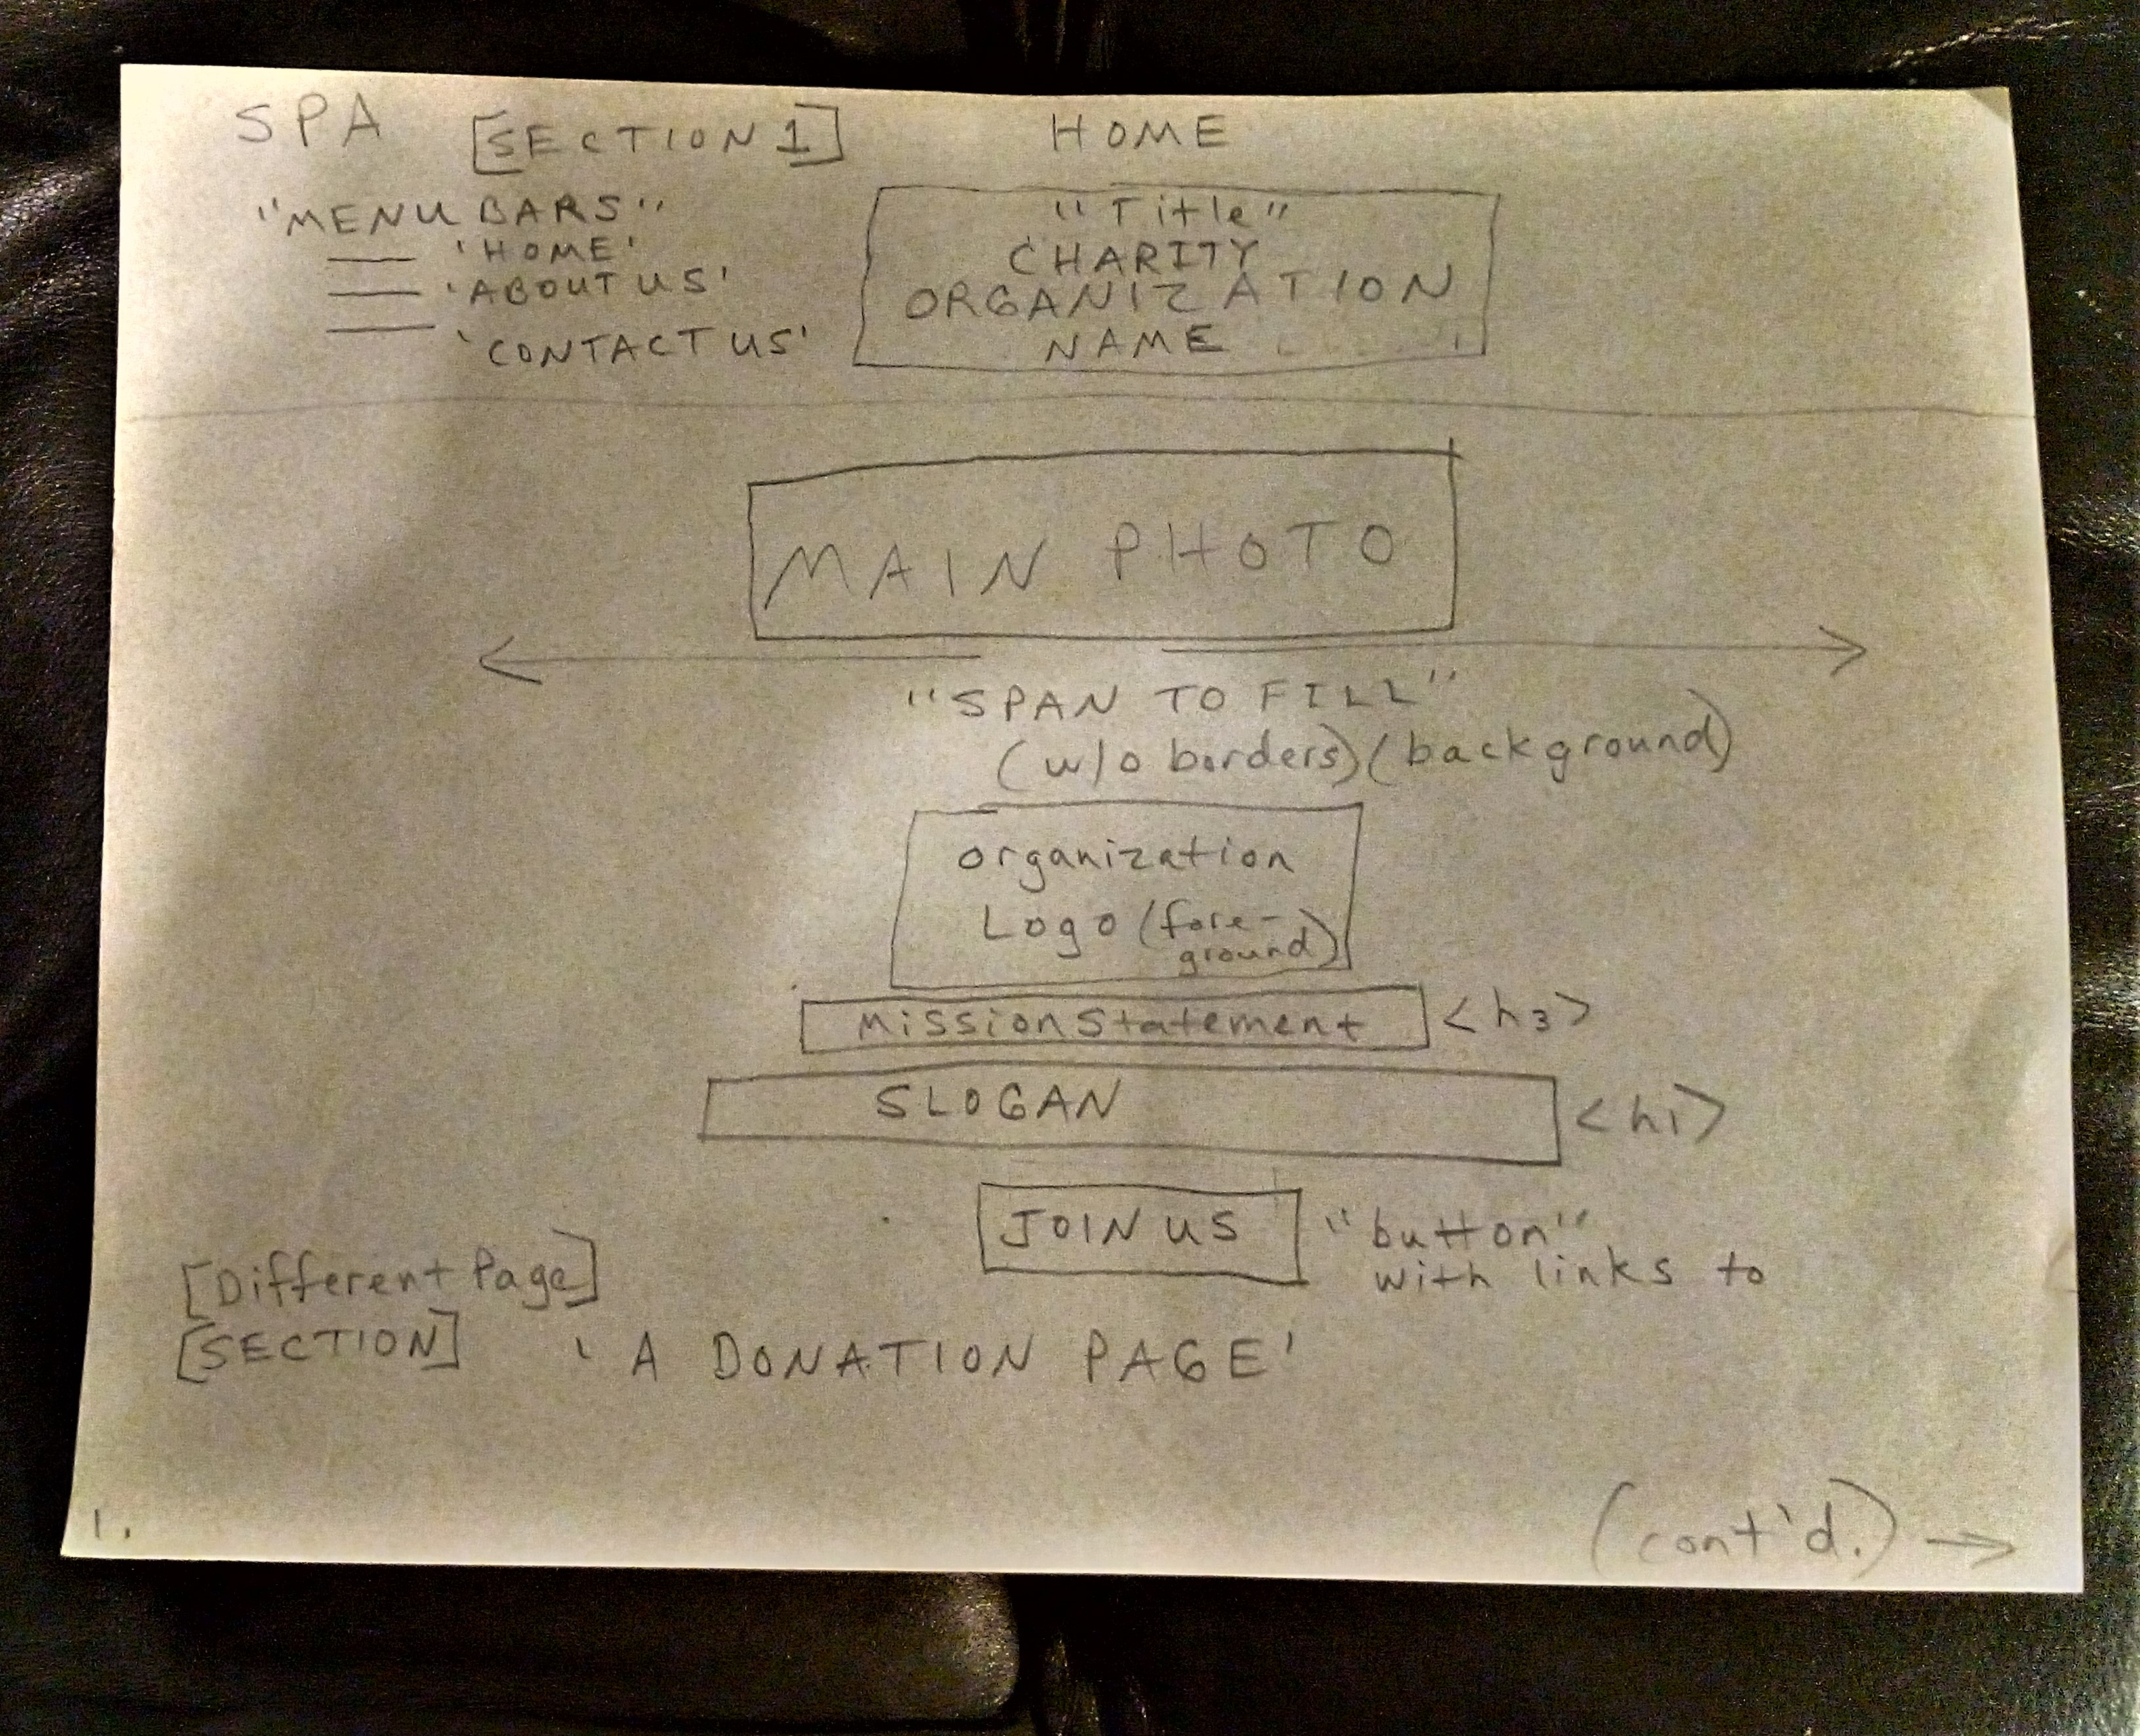 SPA [SECTION 1] HOME
"MENU BARS"
'HOME'
'ABOUT US'
'CONTACT US'
"Title"
CHARITY
ORGANIZATION
NAME
MAIN PHOTO
"SPAN TO FILL"
(w/o borders) (background)
organization
Logo (fore-
ground)
Mission Statement <h3>
SLOGAN <h1>
JOIN US "button"
with links to
[Different Page]
[SECTION] 'A DONATION PAGE'
1.
(cont'd.) →